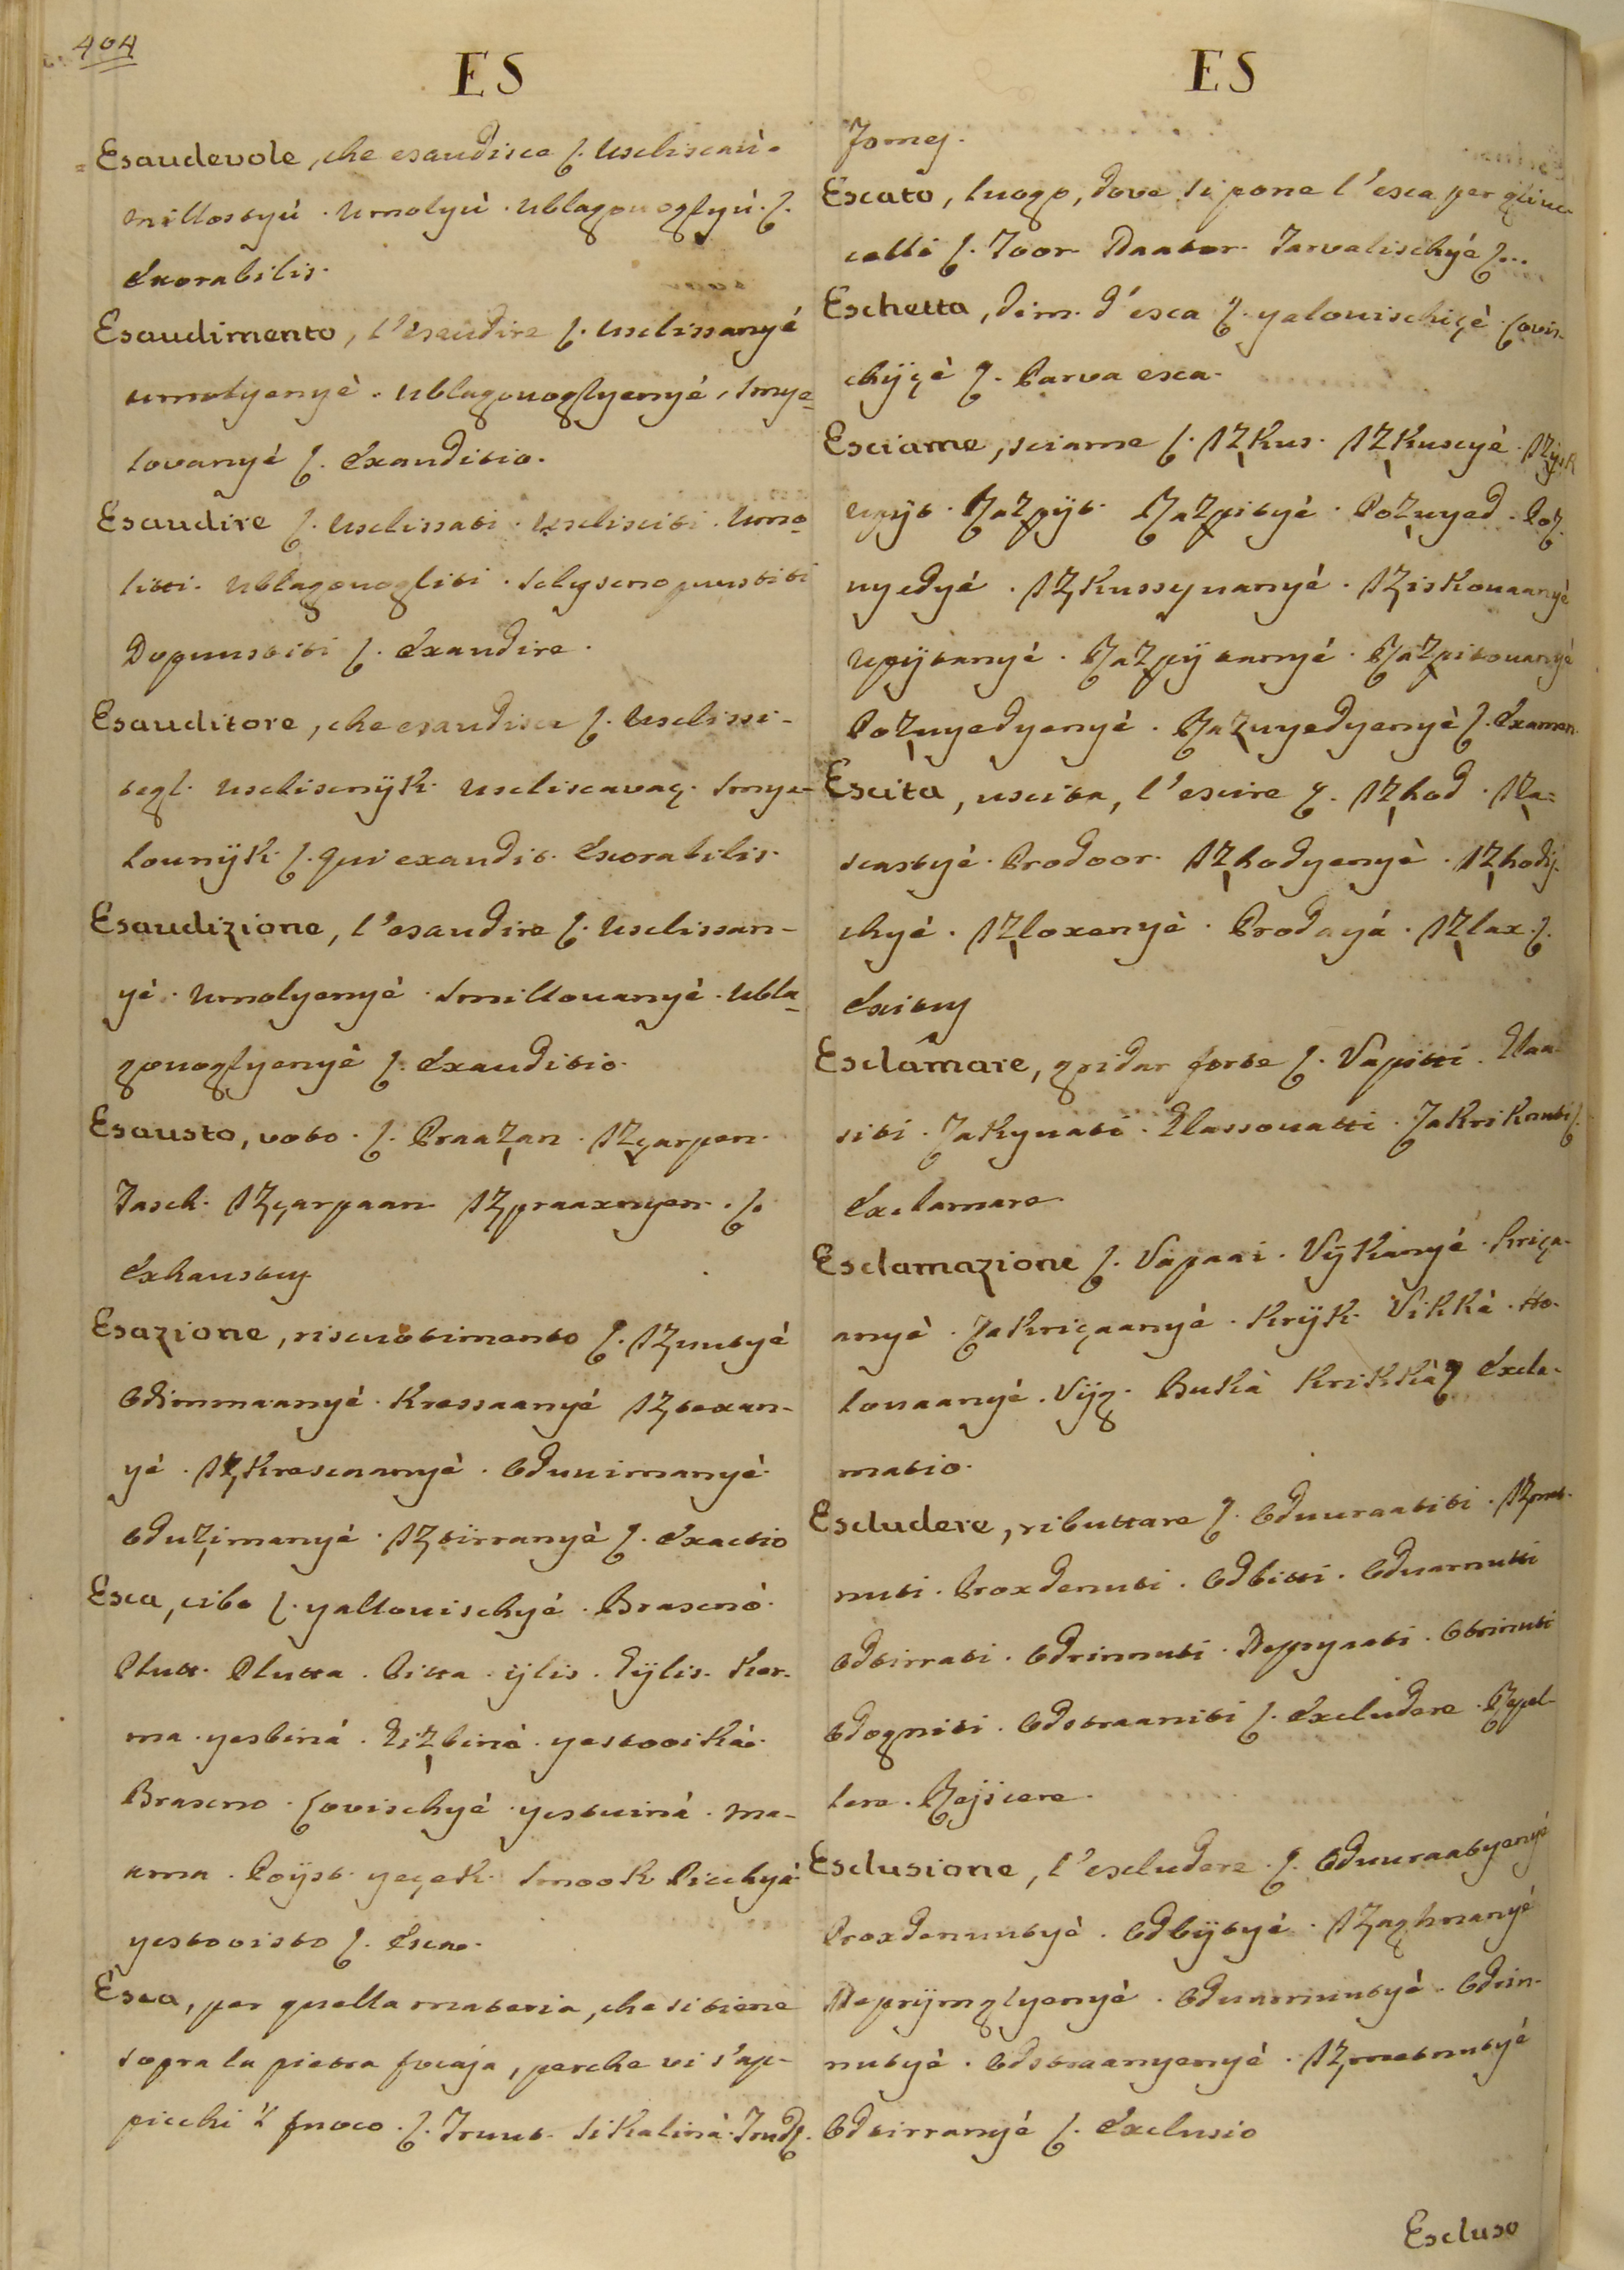 404
ES
Esaudevole, che esaudisce ſ. Uscliscaiì.
millostyú. Umolyú. Ublagouoglyú. ſ.
Exorabilis.
Esaudimento, l'esaudire ſ. Usclissanyé
umolyenyè. Ublagouoglyenyé, smye=
lovanyé ſ. Exauditio.
Esaudire ſ. Usclissati. Usclisciti. Umo=
litti. Ublagouogliti. Sclyscno puustiti
Dopuustiti ſ. Exaudire.
Esauditore, che esaudisce ſ. Usclissi-
tegl. Uscliscnÿk. Uscliscavaç. Smye-
lounÿk ſ. Qui exaudit. Exorabilis.
Esaudizione, l'esaudire ſ. Usclissan-
yé. Umolyenyé. Smillouanyé. Ubla=
gouoglyenyé ſ. Exauditio.
Esausto, voto. ſ. Praaẓan. Iẓçarpen.
Tasch. Iẓçarpaan Iẓpraaxnyen. ſ.
Exhaustuʒ
Esazione, riscuotimento ſ. Iẓuutyé
Odimmaanyé. Kressaanyé Iẓtexan-
yé. Iẓkrescaanyè. Oduuimanyè.
Oduẓimanyé. Iẓtirranyè ſ. Exactio
Esca, cibo ſ. yallouischyé. Brascnò.
Plutt. Plutta. Pitta. ÿlis. Xÿlis. Kar-
ma. yestiná. Xiẓbinà. yestooikáe.
Brascno. ſovischyè. yestuiná. Ma-
ama. Poÿst. yeçek. Smook Picchyé.
yestovisto ſ. Esca.
Esca, per quella materia, che si tiene
sopra la pietra focaja, perche vi s'ap-
picchi 'l fuoco. ſ. Truut. Sikalinà. Trudſ.
ES
Fomeſ.
Escato, luogo, dove si pone l'esca per gli uc-
celli ſ. Toor. Daator. Tarvalischyé ſ...
Eschetta, dim. d'esca ſ. yalouischiçé. ſovis-
chÿçè ſ. Parva esca.
Esciame, sciame ſ. Iẓkus. Iẓkuscyè.
upÿt. Raẓpÿt. Raẓpityé. Poẓuyed. Poẓ
uyedyé. Iẓkussyuanyé. Iẓiskouaanyè
upÿtanyé. Raẓpÿtanyé. Raẓpitouanyè
Poẓuyedyenyè. Raẓuyedyenyè ſ. Examen.
Escita, uscita, l'escire ſ. Iẓhod. Iẓla=
scastyé. Prodoor. Iẓhodyenyè. Iẓhodÿ-
chyé. Iẓloxenyè. Prodayá. Iẓlax. ſ.
Exituʒ
Esclamare, gridar forte ſ. Vapitti. Glaa-
siti. Zakyuati. Glassouatti. Zakriknuti ſ.
Exclamare.
Esclamazione ſ. Vapaai. Vÿkianyé. Kriça-
anyè. Zakriçaanyé. Krÿk. Vikkà. Ho-
louaanyé. Vÿg. Bukà Krikkà ſ Excla-
matio.
Escludere, ributtare ſ. Oduuraatiti. Iẓmet-
nuti. Proxdenuti. Odbitti. Oduarnutti
Odtirrati. Odrinnuti. Otrinuti
Odogniti. Odstraaniti ſ. Excludere. Repel-
lere. Rejicere.
Esclusione, l'escludere. ſ. Oduuraatyenyé
Proxdenuutyé. Odbÿtyé. Iẓaghnanyé
Deprÿmglyenyè. Oduarnuutyè. Odrin-
nutyé. Odstraanyenyé. Iẓmetnutyé
Odtirranyé ſ. Exclusio
Escluso